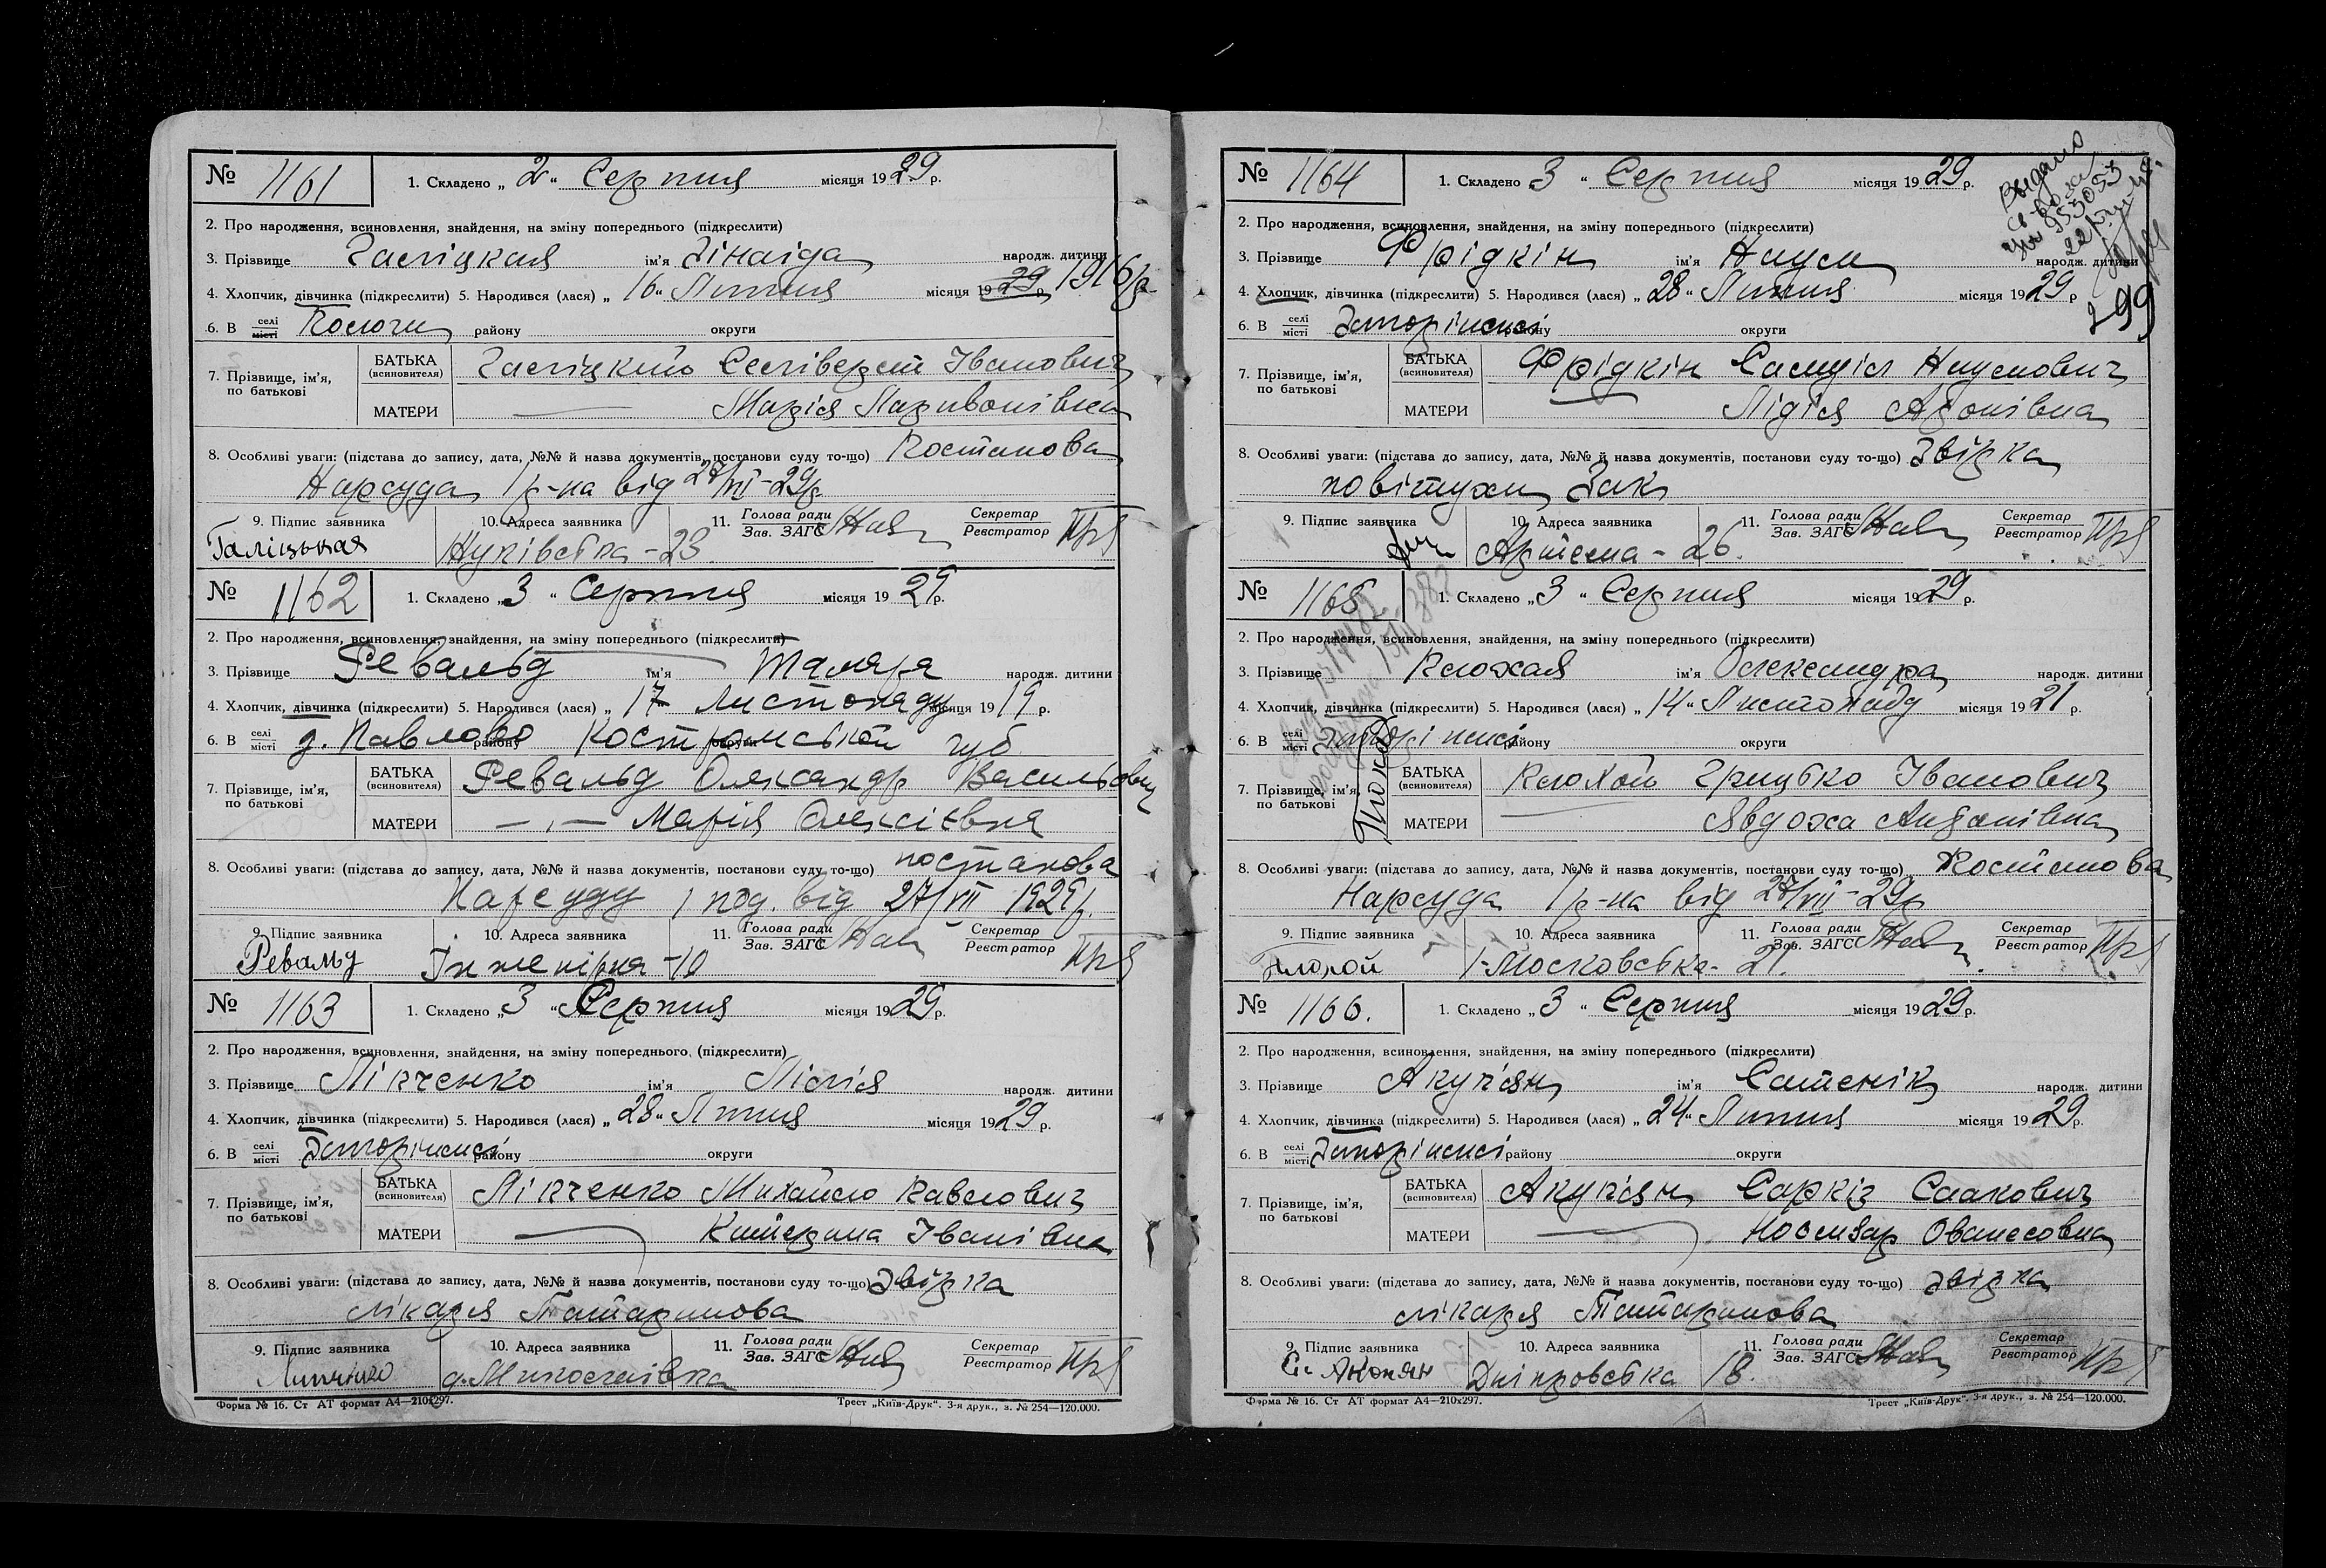 № 1161 1. Складено „ 2 “ Серпня місяця 1929 р.
2. Про народження, всиновлення, знайдення, на зміну попереднього (підкреслити)
3. Прізвище Галіцкая ім'я Зінаіда народж. дитини
4. Хлопчик, дівчинка (підкреслити) 5. Народився (лася) „ 16 “ Липня місяця 1929 р. 1916 р
6. В селі місті району округи
7. Прізвище, ім'я, по батькові
БАТЬКА (всиновителя) Галіцкий Селіверст Іванович
МАТЕРИ — Марія Ларивонівна
8. Особливі уваги: (підстава до запису, дата, №№ й назва документів, постанови суду то-що) Постанова
Нарсуда 1 р-на від 27/VII-29р
9. Підпис заявника 10. Адреса заявника 11. Голова ради Зав. ЗАГС Секретар Реєстратор
Галіцькая - 23
№ 1162 1. Складено „ 3 “ Серпня місяця 1929 р.
2. Про народження, всиновлення, знайдення, на зміну попереднього (підкреслити)
3. Прізвище Ревальд ім'я Тамара народж. дитини
4. Хлопчик, дівчинка (підкреслити) 5. Народився (лася) „ 17 Листопаду місяця 1919 р.
6. В селі місті д. Павлово району Костромської округи губ
7. Прізвище, ім'я, по батькові
БАТЬКА (всиновителя) Ревальд Олександр Васильович
МАТЕРИ —„— Марія Олексієвна
8. Особливі уваги: (підстава до запису, дата, №№ й назва документів, постанови суду то-що) постанова
Нарсуду 1 від 27/VII 1929р.
9. Підпис заявника 10. Адреса заявника 11. Голова ради Зав. ЗАГС Секретар Реєстратор
Ревальд Інженірна - 10
№ 1163 1. Складено „ 3 “ Серпня місяця 1929 р.
2. Про народження, всиновлення, знайдення, на зміну попереднього (підкреслити)
3. Прізвище Ліпченко ім'я Лілія народж. дитини
4. Хлопчик, дівчинка (підкреслити) 5. Народився (лася) „ 28 “ Липня місяця 1929 р.
6. В селі місті Запоріжжі району округи
7. Прізвище, ім'я, по батькові
БАТЬКА (всиновителя) Ліпченко Михайло Павлович
МАТЕРИ — Катерина Іванівна
8. Особливі уваги: (підстава до запису, дата, №№ й назва документів, постанови суду то-що) Довідка
лікаря Татаринова
9. Підпис заявника 10. Адреса заявника 11. Голова ради Зав. ЗАГС Секретар Реєстратор
Форма № 16. Ст АТ формат А4—210х297. Трест „Київ-Друк“. 3-я друк., з. № 254—120.000.
№ 1164 1. Складено 3 “ Серпня місяця 1929 р.
Выдано
2. Про народження, всиновлення, знайдення, на зміну попереднього (підкреслити)
3. Прізвище Фрідкін ім'я Наум народж. дитини
4. Хлопчик, дівчинка (підкреслити) 5. Народився (лася) „ 28 “ Липня місяця 1929 р
6. В селі місті Запоріжжі району округи
7. Прізвище, ім'я, по батькові
БАТЬКА (всиновителя) Фрідкін Самуіл Наумович
МАТЕРИ — Лідія
8. Особливі уваги: (підстава до запису, дата, №№ й назва документів, постанови суду то-що) Довідка
повітухи Зак
9. Підпис заявника 10. Адреса заявника 11. Голова ради Зав. ЗАГС Секретар Реєстратор
Артема - 26.
№ 1165. 1. Складено „ 3 “ Серпня місяця 1929 р.
2. Про народження, всиновлення, знайдення, на зміну попереднього (підкреслити)
3. Прізвище Клюхая ім'я Олександра народж. дитини
4. Хлопчик, дівчинка (підкреслити) 5. Народився (лася) „ 14 “ Листопаду місяця 1921 р.
6. В селі місті Запоріжжі району округи
7. Прізвище, ім'я, по батькові
БАТЬКА (всиновителя) Клюхой Грицько Іванович
МАТЕРИ — Явдоха
8. Особливі уваги: (підстава до запису, дата, №№ й назва документів, постанови суду то-що) Постанова
Нарсуда 1 р-на від 27/VII-29р
9. Підпис заявника 10. Адреса заявника 11. Голова ради Зав. ЗАГС Секретар Реєстратор
Московська - 21.
№ 1166. 1. Складено „ 3 “ Серпня місяця 1929 р.
2. Про народження, всиновлення, знайдення, на зміну попереднього (підкреслити)
3. Прізвище Акуп'ян ім'я Сатенік народж. дитини
4. Хлопчик, дівчинка (підкреслити) 5. Народився (лася) „ 24 “ Липня місяця 1929 р.
6. В селі місті Запоріжжі району округи
7. Прізвище, ім'я, по батькові
БАТЬКА (всиновителя) Акуп'ян Саркіз Саакович
МАТЕРИ — Ованесовна
8. Особливі уваги: (підстава до запису, дата, №№ й назва документів, постанови суду то-що) Довідка
лікаря Татаринова
9. Підпис заявника 10. Адреса заявника 11. Голова ради Зав. ЗАГС Секретар Реєстратор
Акопян Дніпровська 18.
Форма № 16. Ст АТ формат А4—210х297. Трест „Київ-Друк“. 3-я друк., з. № 254—120.000.